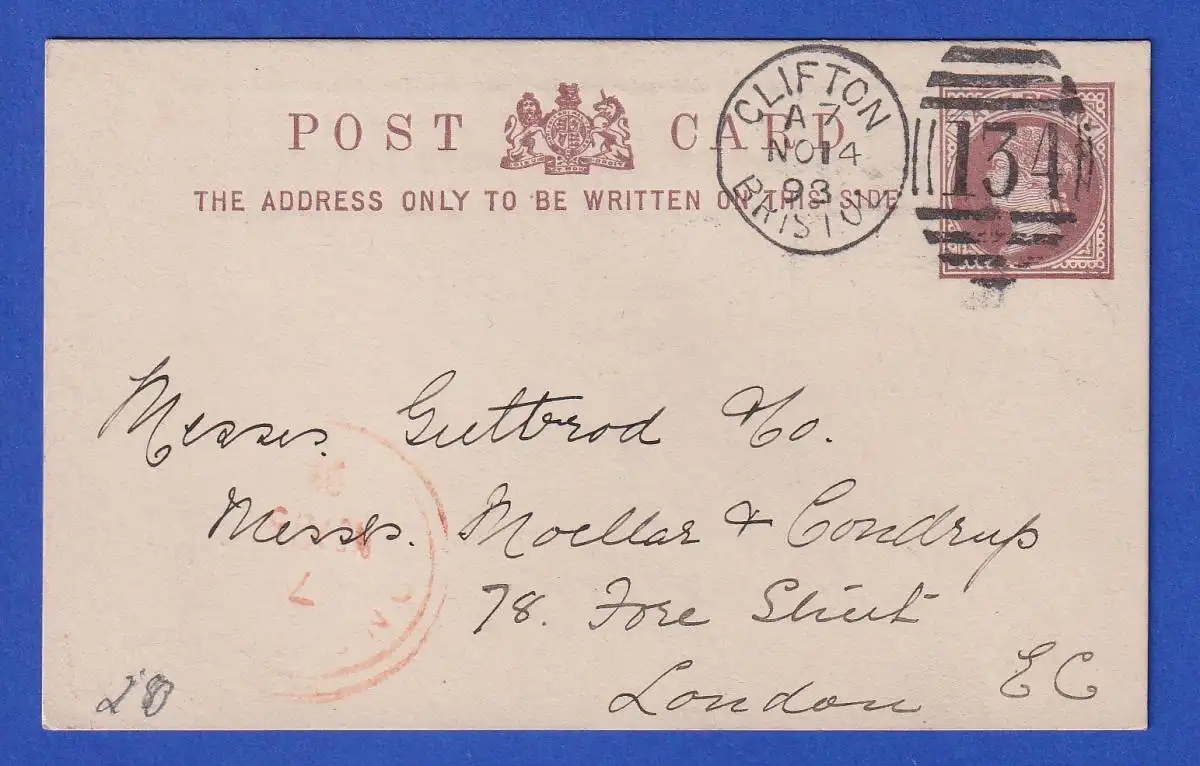 POST CARD
THE ADDRESS ONLY TO BE WRITTEN ON THIS SIDE
CLIFTON
A 7
NO 14
93
BRISTOL
134
Messrs. Guttbrod & Co.
Messrs. Moellar & Condrup
78. Fore Street
London EC